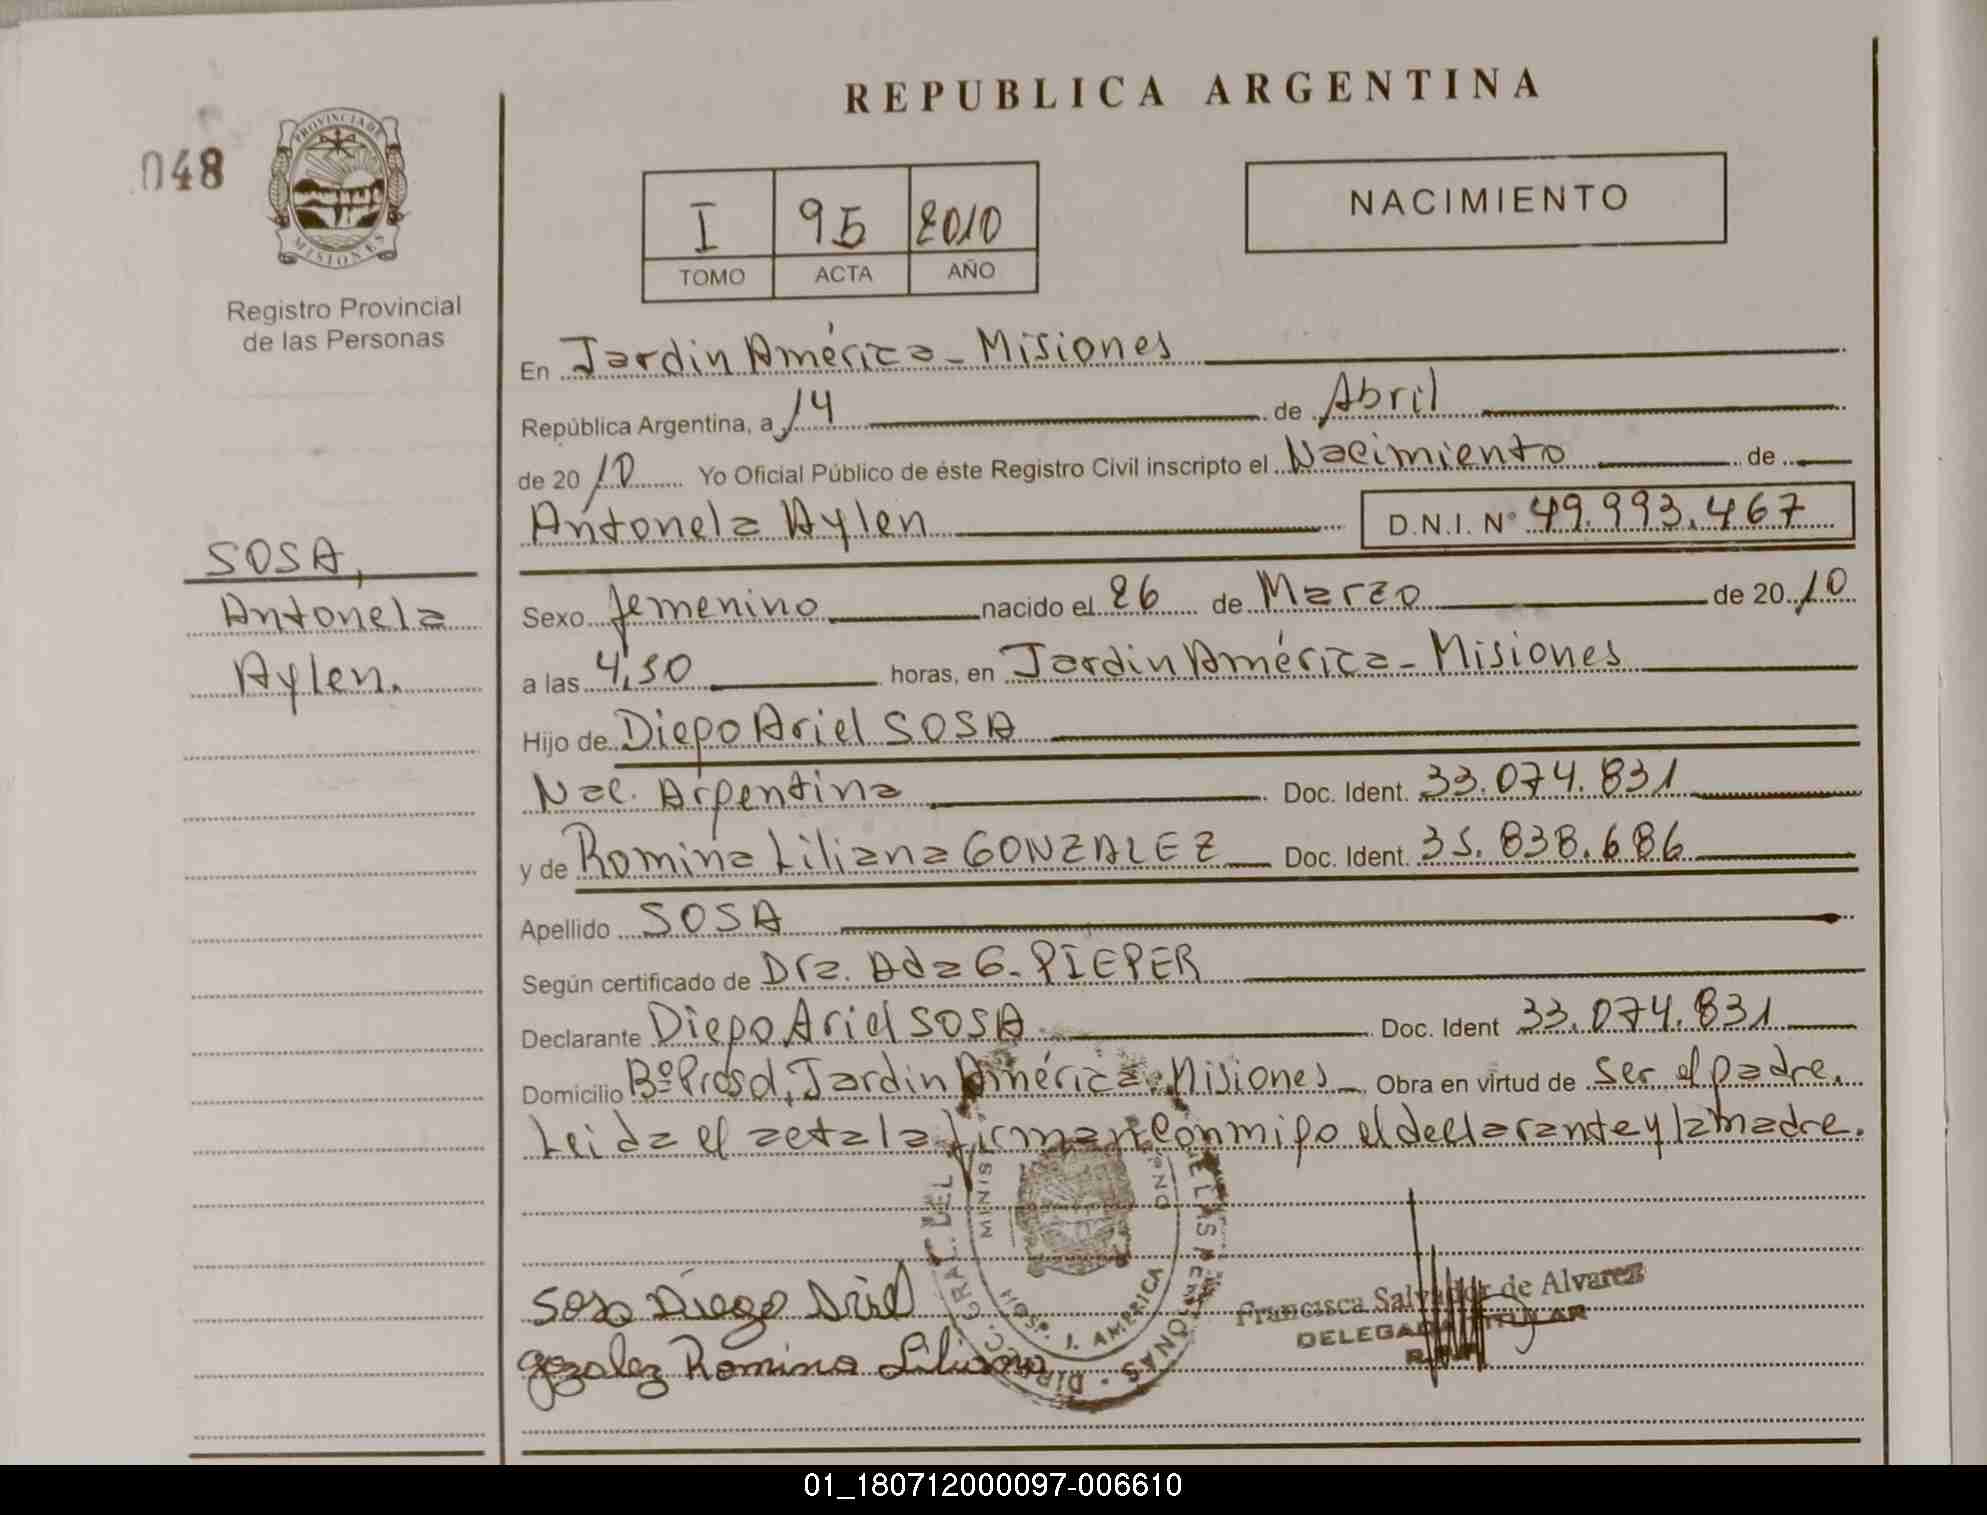 REPUBLICA ARGENTINA
048
PROVINCIA DE
MISIONES
Registro Provincial
de las Personas
I 95 2010
TOMO ACTA AÑO
NACIMIENTO
En Jardin América - Misiones
República Argentina, a 14 de Abril
de 2010 Yo Oficial Público de éste Registro Civil inscripto el Nacimiento de
Antonela Aylen D.N.I. Nº 49.993.467
SOSA,
Antonela
Aylen.
Sexo femenino nacido el 26 de Marzo de 2010
a las 4,30 horas, en Jardin América - Misiones
Hijo de Diego Ariel SOSA
Nac. Argentina Doc. Ident. 33.074.831
y de Romina Liliana GONZALEZ Doc. Ident. 35.838.686
Apellido SOSA
Según certificado de Dra. Ada G. PIEPER
Declarante Diego Ariel SOSA Doc. Ident 33.074.831
Domicilio Bº Prosol, Jardin América - Misiones Obra en virtud de ser el padre.
Leida el acta la firman conmigo el declarante y la madre.
Sosa Diego Ariel
gozalez Romina Liliana
DIRECC. GRAL. DEL
MINIS
HOSP. J. AMERICA
Francisca Salvador de Alvarez
DELEGADA TITULAR
01_180712000097-006610